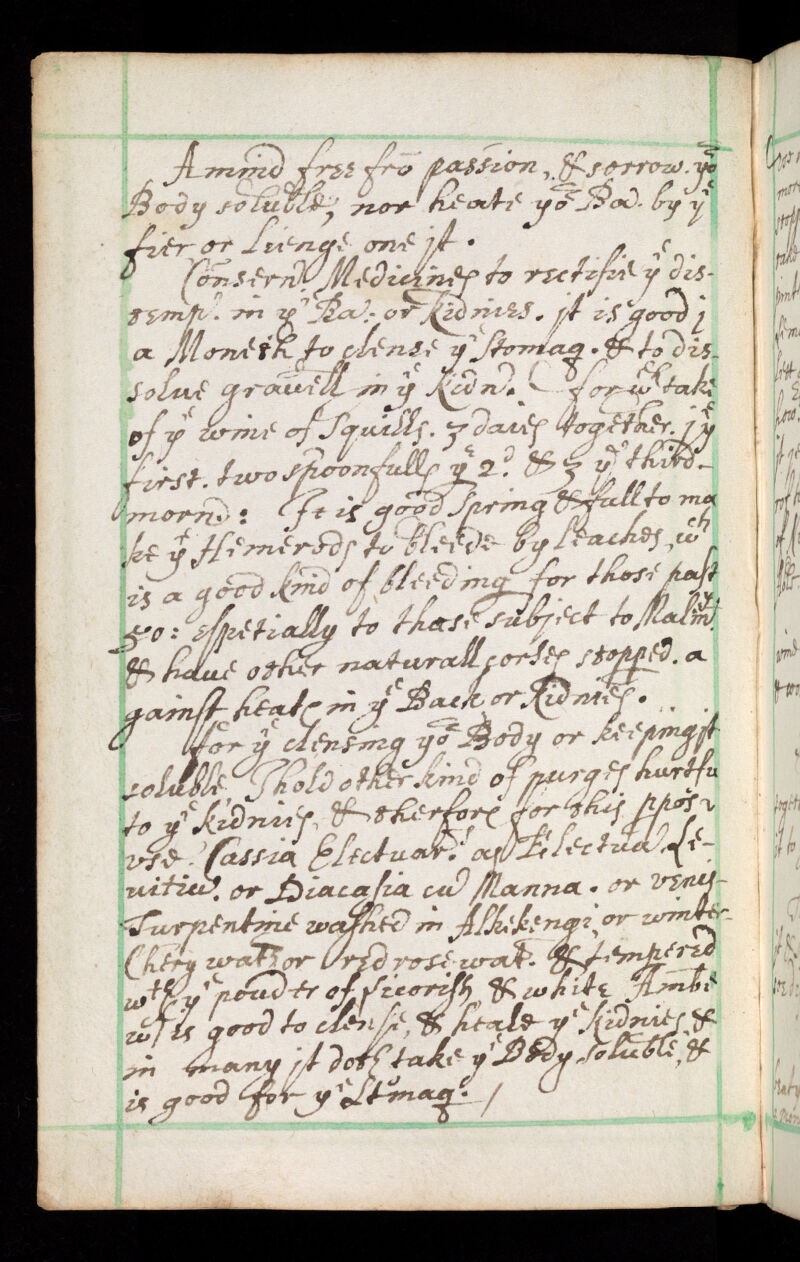 A mind free frō passion, & sorrow. yoͬ
Body soluble, nor heate yoͬ Ba. by yͤ
fier or Lienge one jt.
Consern. Medicines to rectifie yͤ dis-
temp.ͬ in yͤ Ba: or Kidnies. jt is good j
a Moneth to clense yͤ Stomaq. & to dis-
solve gravell in yͤ Kidn. for wͨʰ take
of yͤ wine of Squills. 3 daies together. j yͤ
first. two spoonfulls yͤ 2ᵈ. & 3 yͤ third
morn.: It is good Spring & full to ma
ke yͤ Hemerods to bleede by leaches, wͨʰ
is a good kind of bleeding for those past
50: Espetially to those subject to
& have other naturall corses stopped. a
gainst heate in yͤ Back or Kidnies.
for yͤ clensing yoͬ Body or keeping jt
soluble I hold other kind of purges hurtfu
to yͤ Kidnies, & therfore for this ppose
vse. Cassia Electuar. as Electua. Le-
nitiu. or Diacasia cū Manna. or venis-
Turpentine washed in Alkekengi, or winter-
Chery wat. or red rose wat. & tempered
wᵗʰ yͤ pouder of licorish & white Ambe
wͨʰ is good to clense, & heale yͤ Kidnies, &
in many jt doth take yͤ Body soluble, &
is good for yͤ Stomaq. /